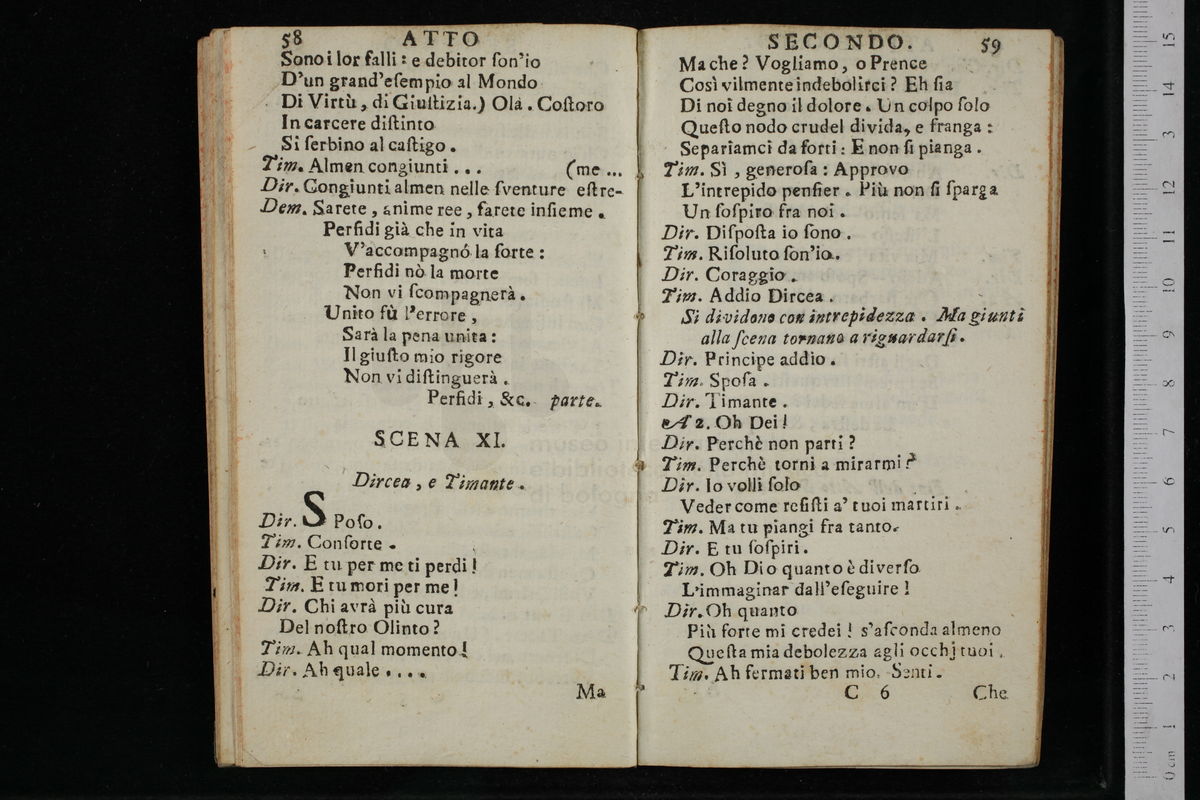 58 ATTO
Sono i lor falli : e debitor ſon'io
D'un grand'eſempio al Mondo
Di Virtù , di Giuſtizia.) Olà . Coſtoro
In carcere diſtinto
Si ſerbino al caſtigo .
Tim. Almen congiunti . . . (me ...
Dir. Congiunti almen nelle ſventure eſtre-
Dem. Sarete , anime ree , ſarete inſieme .
Perfidi già che in vita
V'accompagnó la ſorte :
Perfidi nò la morte
Non vi ſcompagnerà .
Unito fù l'errore ,
Sarà la pena unita :
Il giuſto mio rigore
Non vi diſtinguerà .
Perfidi , &c. parte.
SCENA XI.
Dircea , e Timante .
Dir. SPoſo .
Tim. Conſorte .
Dir. E tu per me ti perdi !
Tim. E tu mori per me !
Dir. Chi avrà più cura
Del noſtro Olinto ?
Tim. Ah qual momento !
Dir. Ah quale . . . .
Ma
SECONDO. 59
Ma che ? Vogliamo , o Prence
Così vilmente indebolirci ? Eh ſia
Di noi degno il dolore . Un colpo ſolo
Queſto nodo crudel divida, e franga :
Separiamci da forti : E non ſi pianga .
Tim. Sì , generoſa : Approvo
L'intrepido penſier . Più non ſi ſparga
Un ſoſpiro fra noi .
Dir. Diſpoſta io ſono .
Tim. Riſoluto ſon'io.
Dir. Coraggio .
Tim. Addio Dircea .
Si dividono con intrepidezza . Ma giunti
alla ſcena tornano a riguardarſi .
Dir. Principe addio .
Tim. Spoſa .
Dir. Timante .
A 2. Oh Dei !
Dir. Perchè non parti ?
Tim. Perchè torni a mirarmi ?
Dir. Io volli ſolo
Veder come reſiſti a' tuoi martiri .
Tim. Ma tu piangi fra tanto.
Dir. E tu ſoſpiri .
Tim. Oh Dio quanto è diverſo
L'immaginar dall'eſeguire !
Dir. Oh quanto
Più forte mi credei ! s'aſconda almeno
Queſta mia debolezza agli occhj tuoi .
Tim. Ah fermati ben mio. Senti .
C 6 Che
museo
biblioteca
di bologna
15
14
13
12
11
10
9
8
7
6
5
4
3
2
1
0 cm